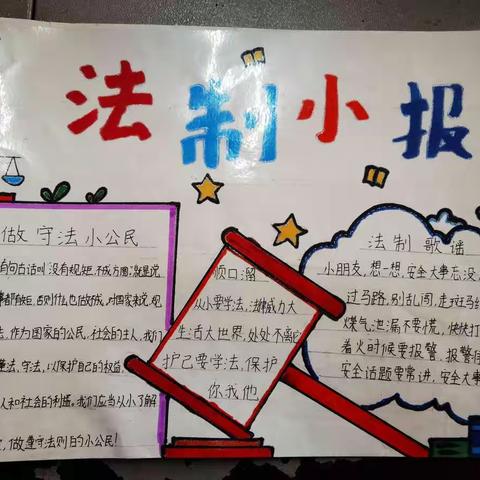 法制小报
做守法小公民
有句古话叫"没有规矩,不成方圆",就是说
都 否则什么也做不成,对国家来说,现
法,作为国家的公民,社会的主人,我们
懂法、守法,以保护自己的权益、
人和社会的利益。我们应当从小了解
做遵守法则日的小公民!
顺口溜
从小要学法,法律威力大
生活大世界,处处不离它
护己要学法,保护
你我他
法制歌谣
小朋友,想一想,安全大事忘没
过马路,别乱闯,走斑马线
煤气泄漏不要慌,快快打
着火时候要报警,报警
安全话题要常讲,安全大事